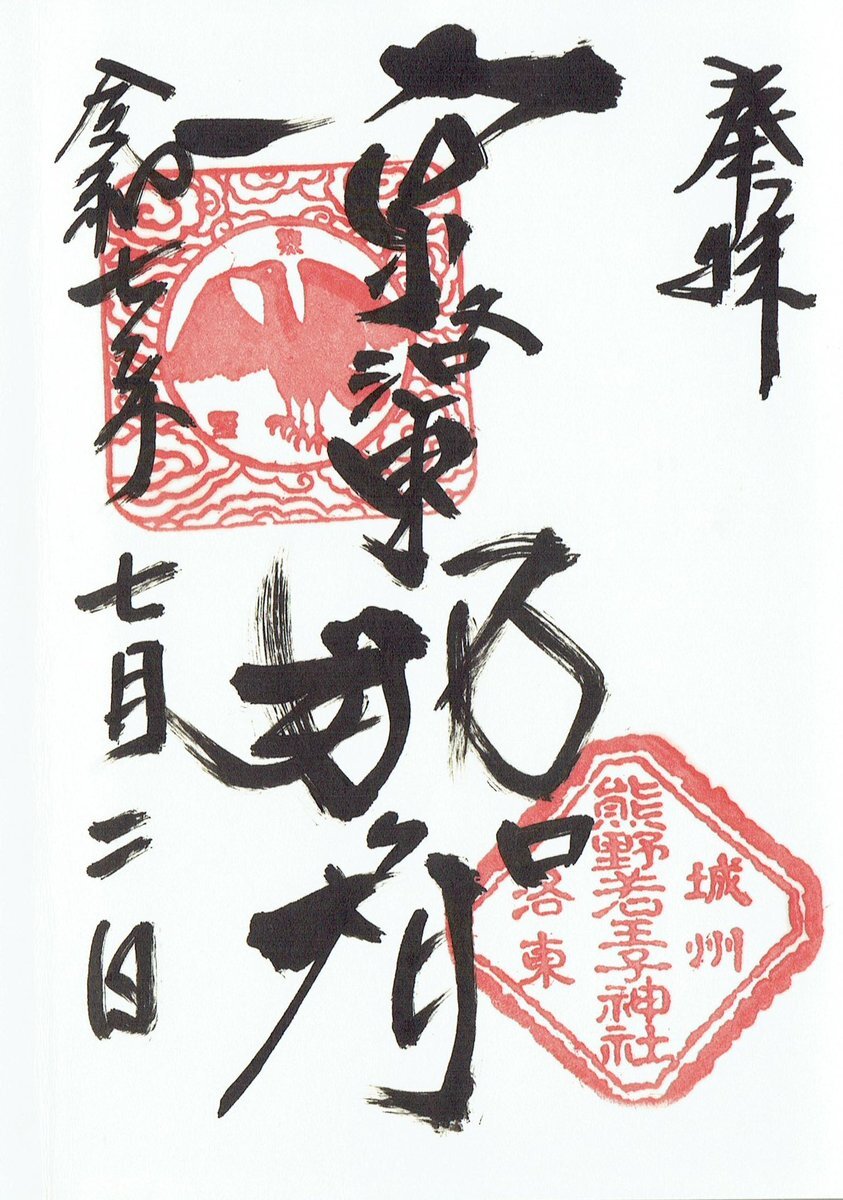 奉拝
京洛東
那智
令和七年七月二日
城州
熊野若王子神社
洛東